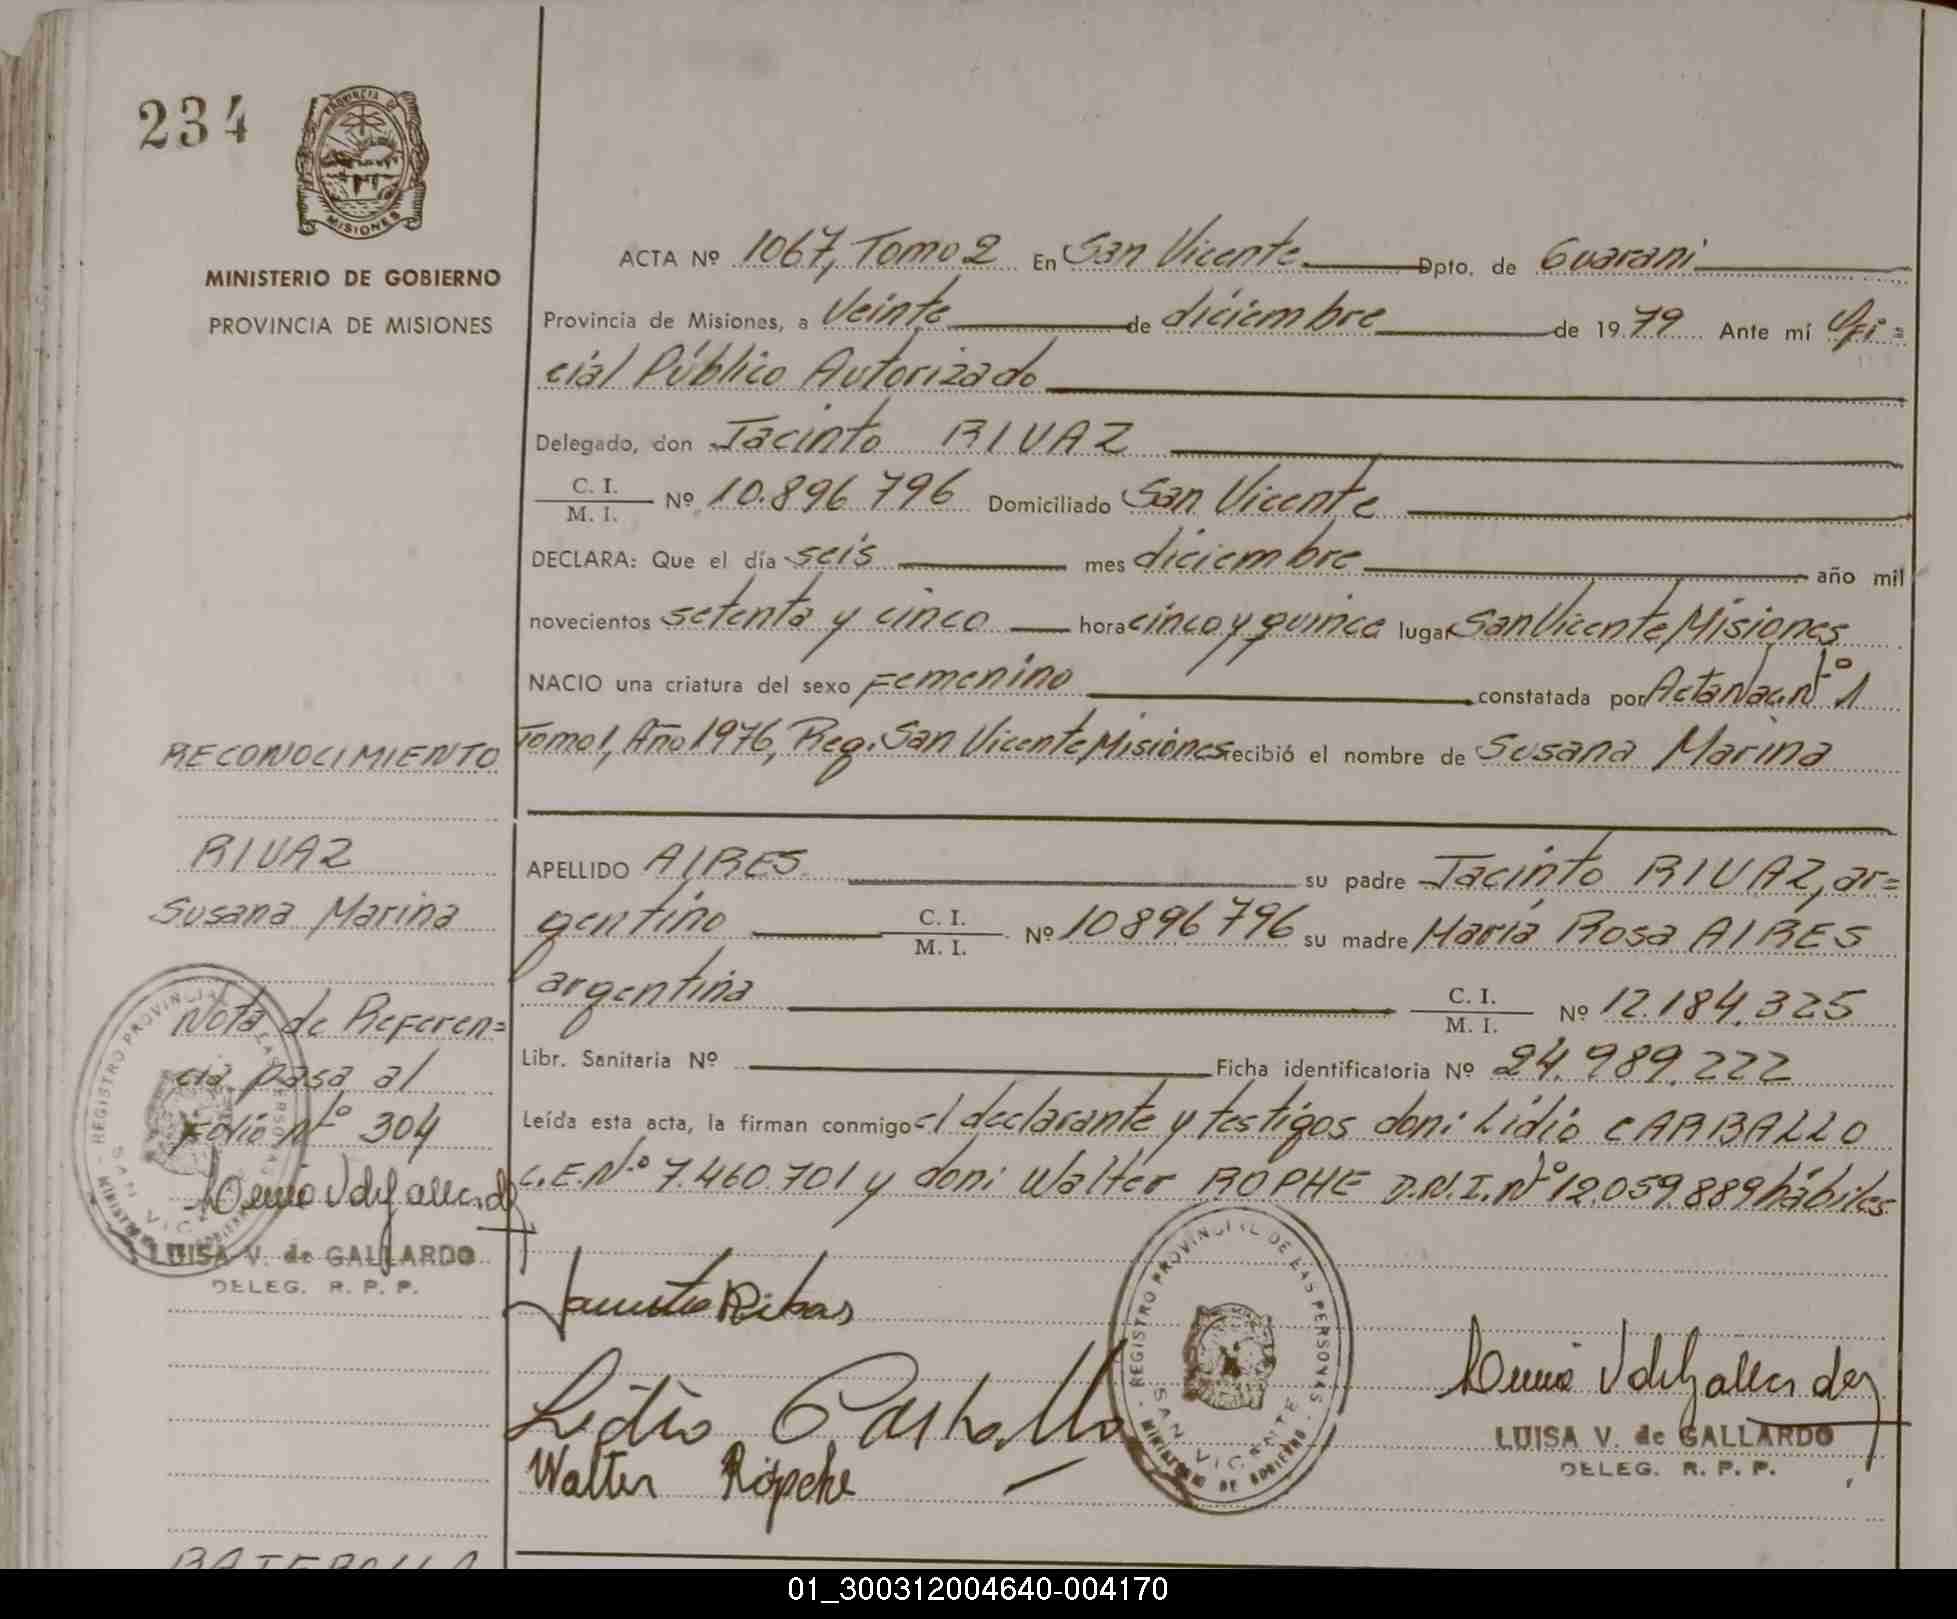 234
PROVINCIA DE
MISIONES
MINISTERIO DE GOBIERNO
PROVINCIA DE MISIONES
ACTA Nº 1067, Tomo 2 En San Vicente Dpto. de Guarani
Provincia de Misiones, a Veinte de diciembre de 1979 Ante mí Ofi=
cial Público Autorizado
Delegado, don Jacinto RIVAZ
C. I.
M. I. Nº 10.896 796 Domiciliado San Vicente
DECLARA: Que el día seis mes diciembre año mil
novecientos setenta y cinco hora cinco y quince lugar San Vicente, Misiones
NACIO una criatura del sexo Femenino constatada por Acta Nac. Nº 1
Tomo 1, Año 1976, Reg. San Vicente, Misiones recibió el nombre de Susana Marina
APELLIDO AIRES su padre Jacinto RIVAZ, ar=
gentino C. I.
M. I. Nº 10896796 su madre María Rosa AIRES
argentina C. I.
M. I. Nº 12.184.325
Libr. Sanitaria Nº Ficha identificatoria Nº 24.989.222
Leída esta acta, la firman conmigo el declarante y testigos don: Lidio CARBALLO
C.E.Nº 7.460.701 y don: Walter ROPHE D.N.I. Nº 12.059.889 hábiles
RECONOCIMIENTO
RIVAZ
Susana Marina
Nota de Referen=
cia pasa al
Folio Nº 304
LUISA V. de GALLARDO
DELEG. R. P. P.
REGISTRO PROVINCIAL DE LAS PERSONAS
SAN VICENTE
MINISTERIO DE GOBIERNO
Jacinto Ribas
Lidio Carballo
Walter Röpcke
REGISTRO PROVINCIAL DE LAS PERSONAS
SAN VICENTE
MINISTERIO DE GOBIERNO
LUISA V. de GALLARDO
DELEG. R. P. P.
01_300312004640-004170